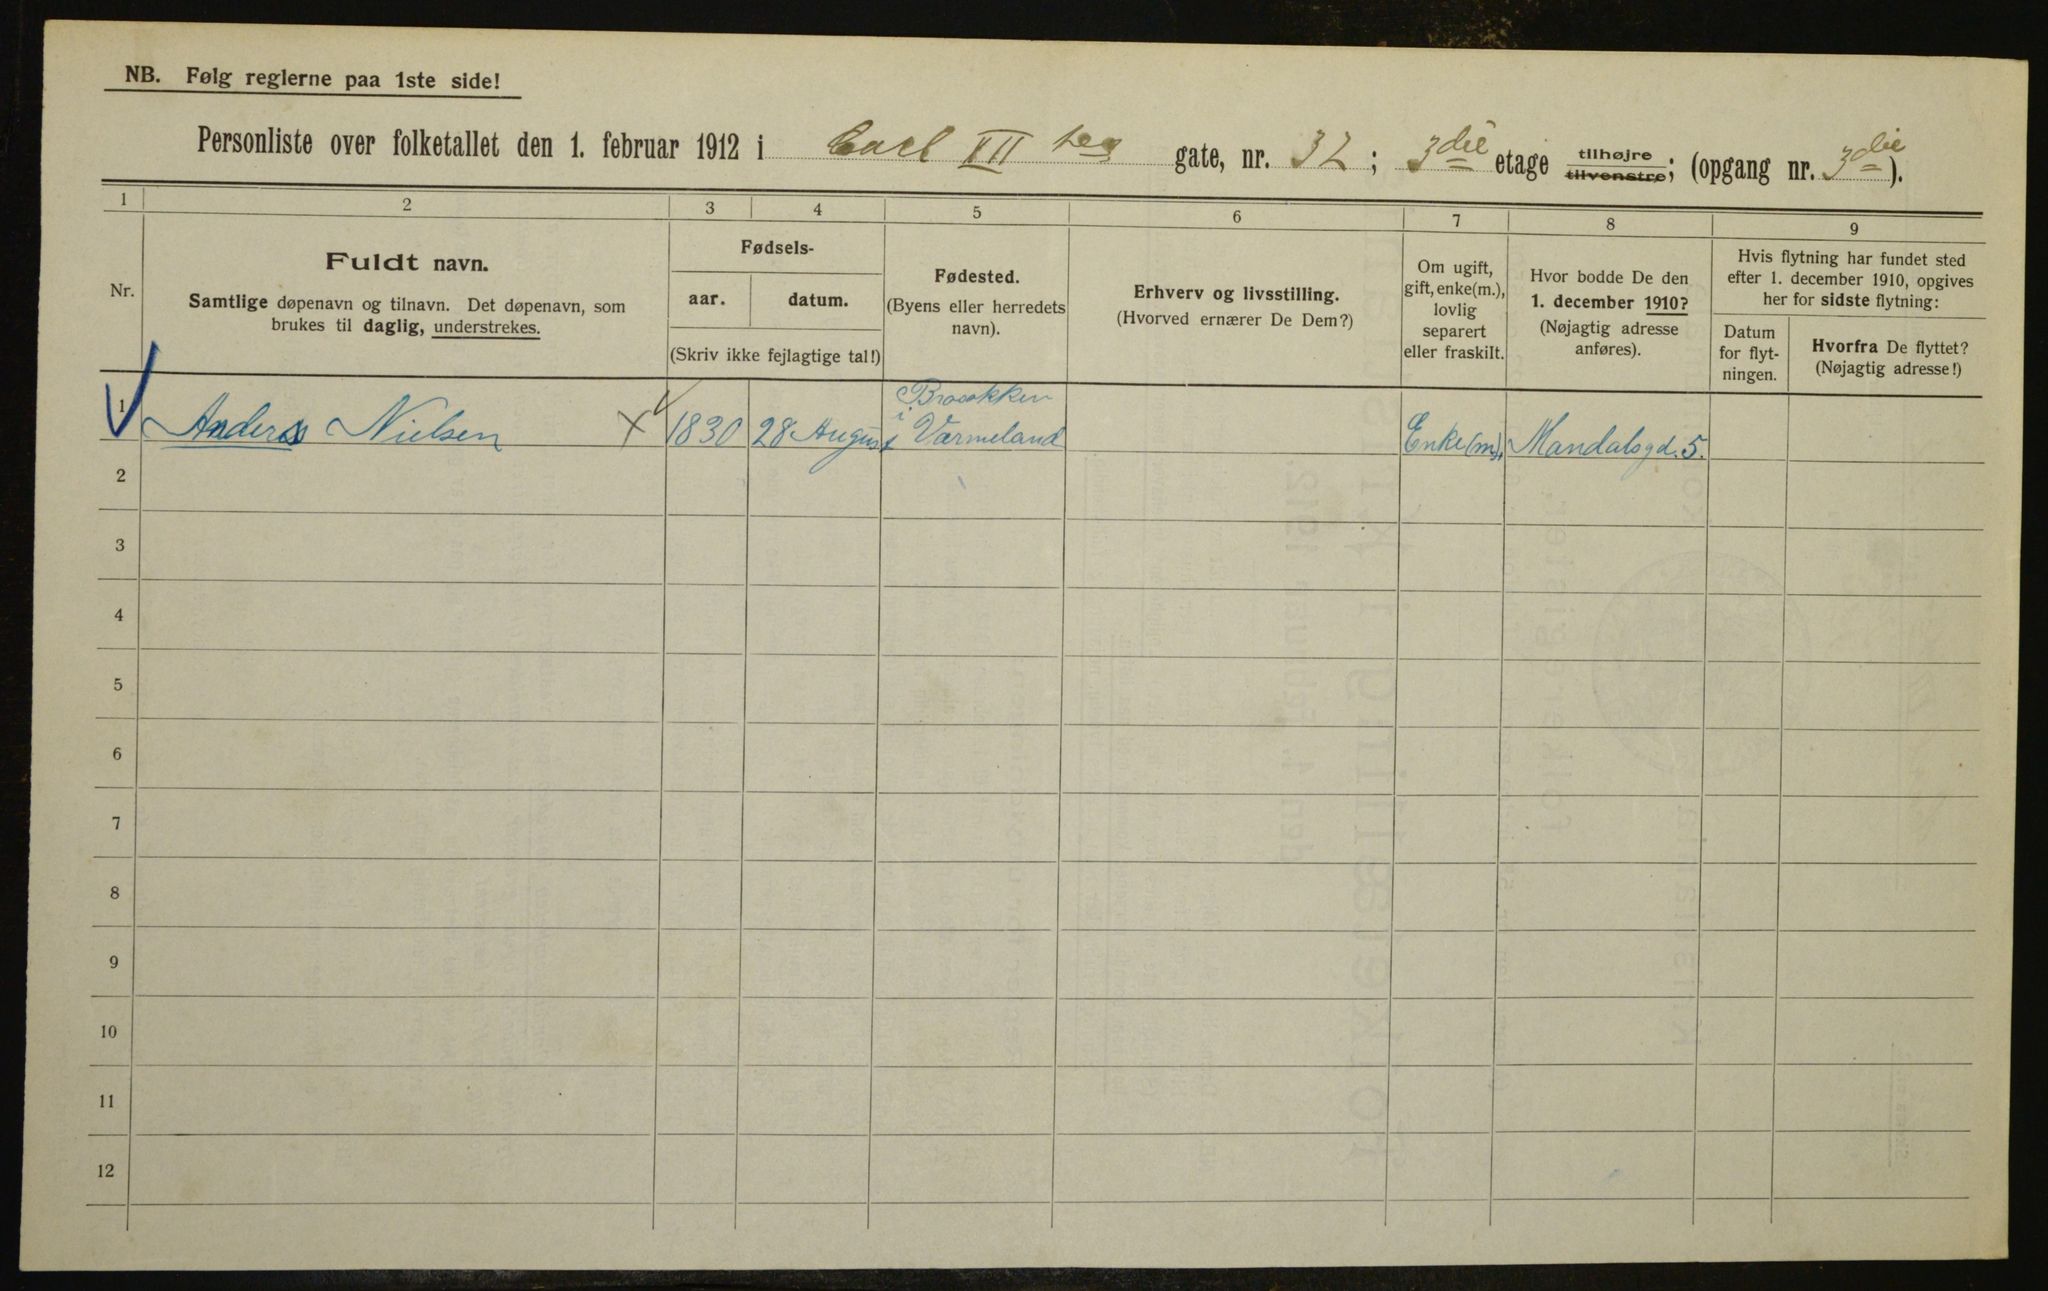 NB. Følg reglerne paa 1ste side!
Personliste over folketallet den 1. februar 1912 i Carl XII tes gate, nr. 32; 3die etage tilhøjre tilvenstre; (opgang nr. 3die).
1 2 3 4 5 6 7 8 9
Nr.
Fuldt navn.
Samtlige døpenavn og tilnavn. Det døpenavn, som
brukes til daglig, understrekes.
Fødsels-
aar. datum.
(Skriv ikke fejlagtige tal!)
Fødested.
(Byens eller herredets
navn).
Erhverv og livsstilling.
(Hvorved ernærer De Dem?)
Om ugift,
gift, enke(m.),
lovlig
separert
eller fraskilt.
Hvor bodde De den
1. december 1910?
(Nøjagtig adresse
anføres).
Hvis flytning har fundet sted
efter 1. december 1910, opgives
her for sidste flytning:
Datum
for flyt-
ningen.
Hvorfra De flyttet?
(Nøjagtig adresse!)
1 Anders Nielsen X 1830 28 August i Värmeland Enke(m). Mandalsgd. 5.
2
3
4
5
6
7
8
9
10
11
12